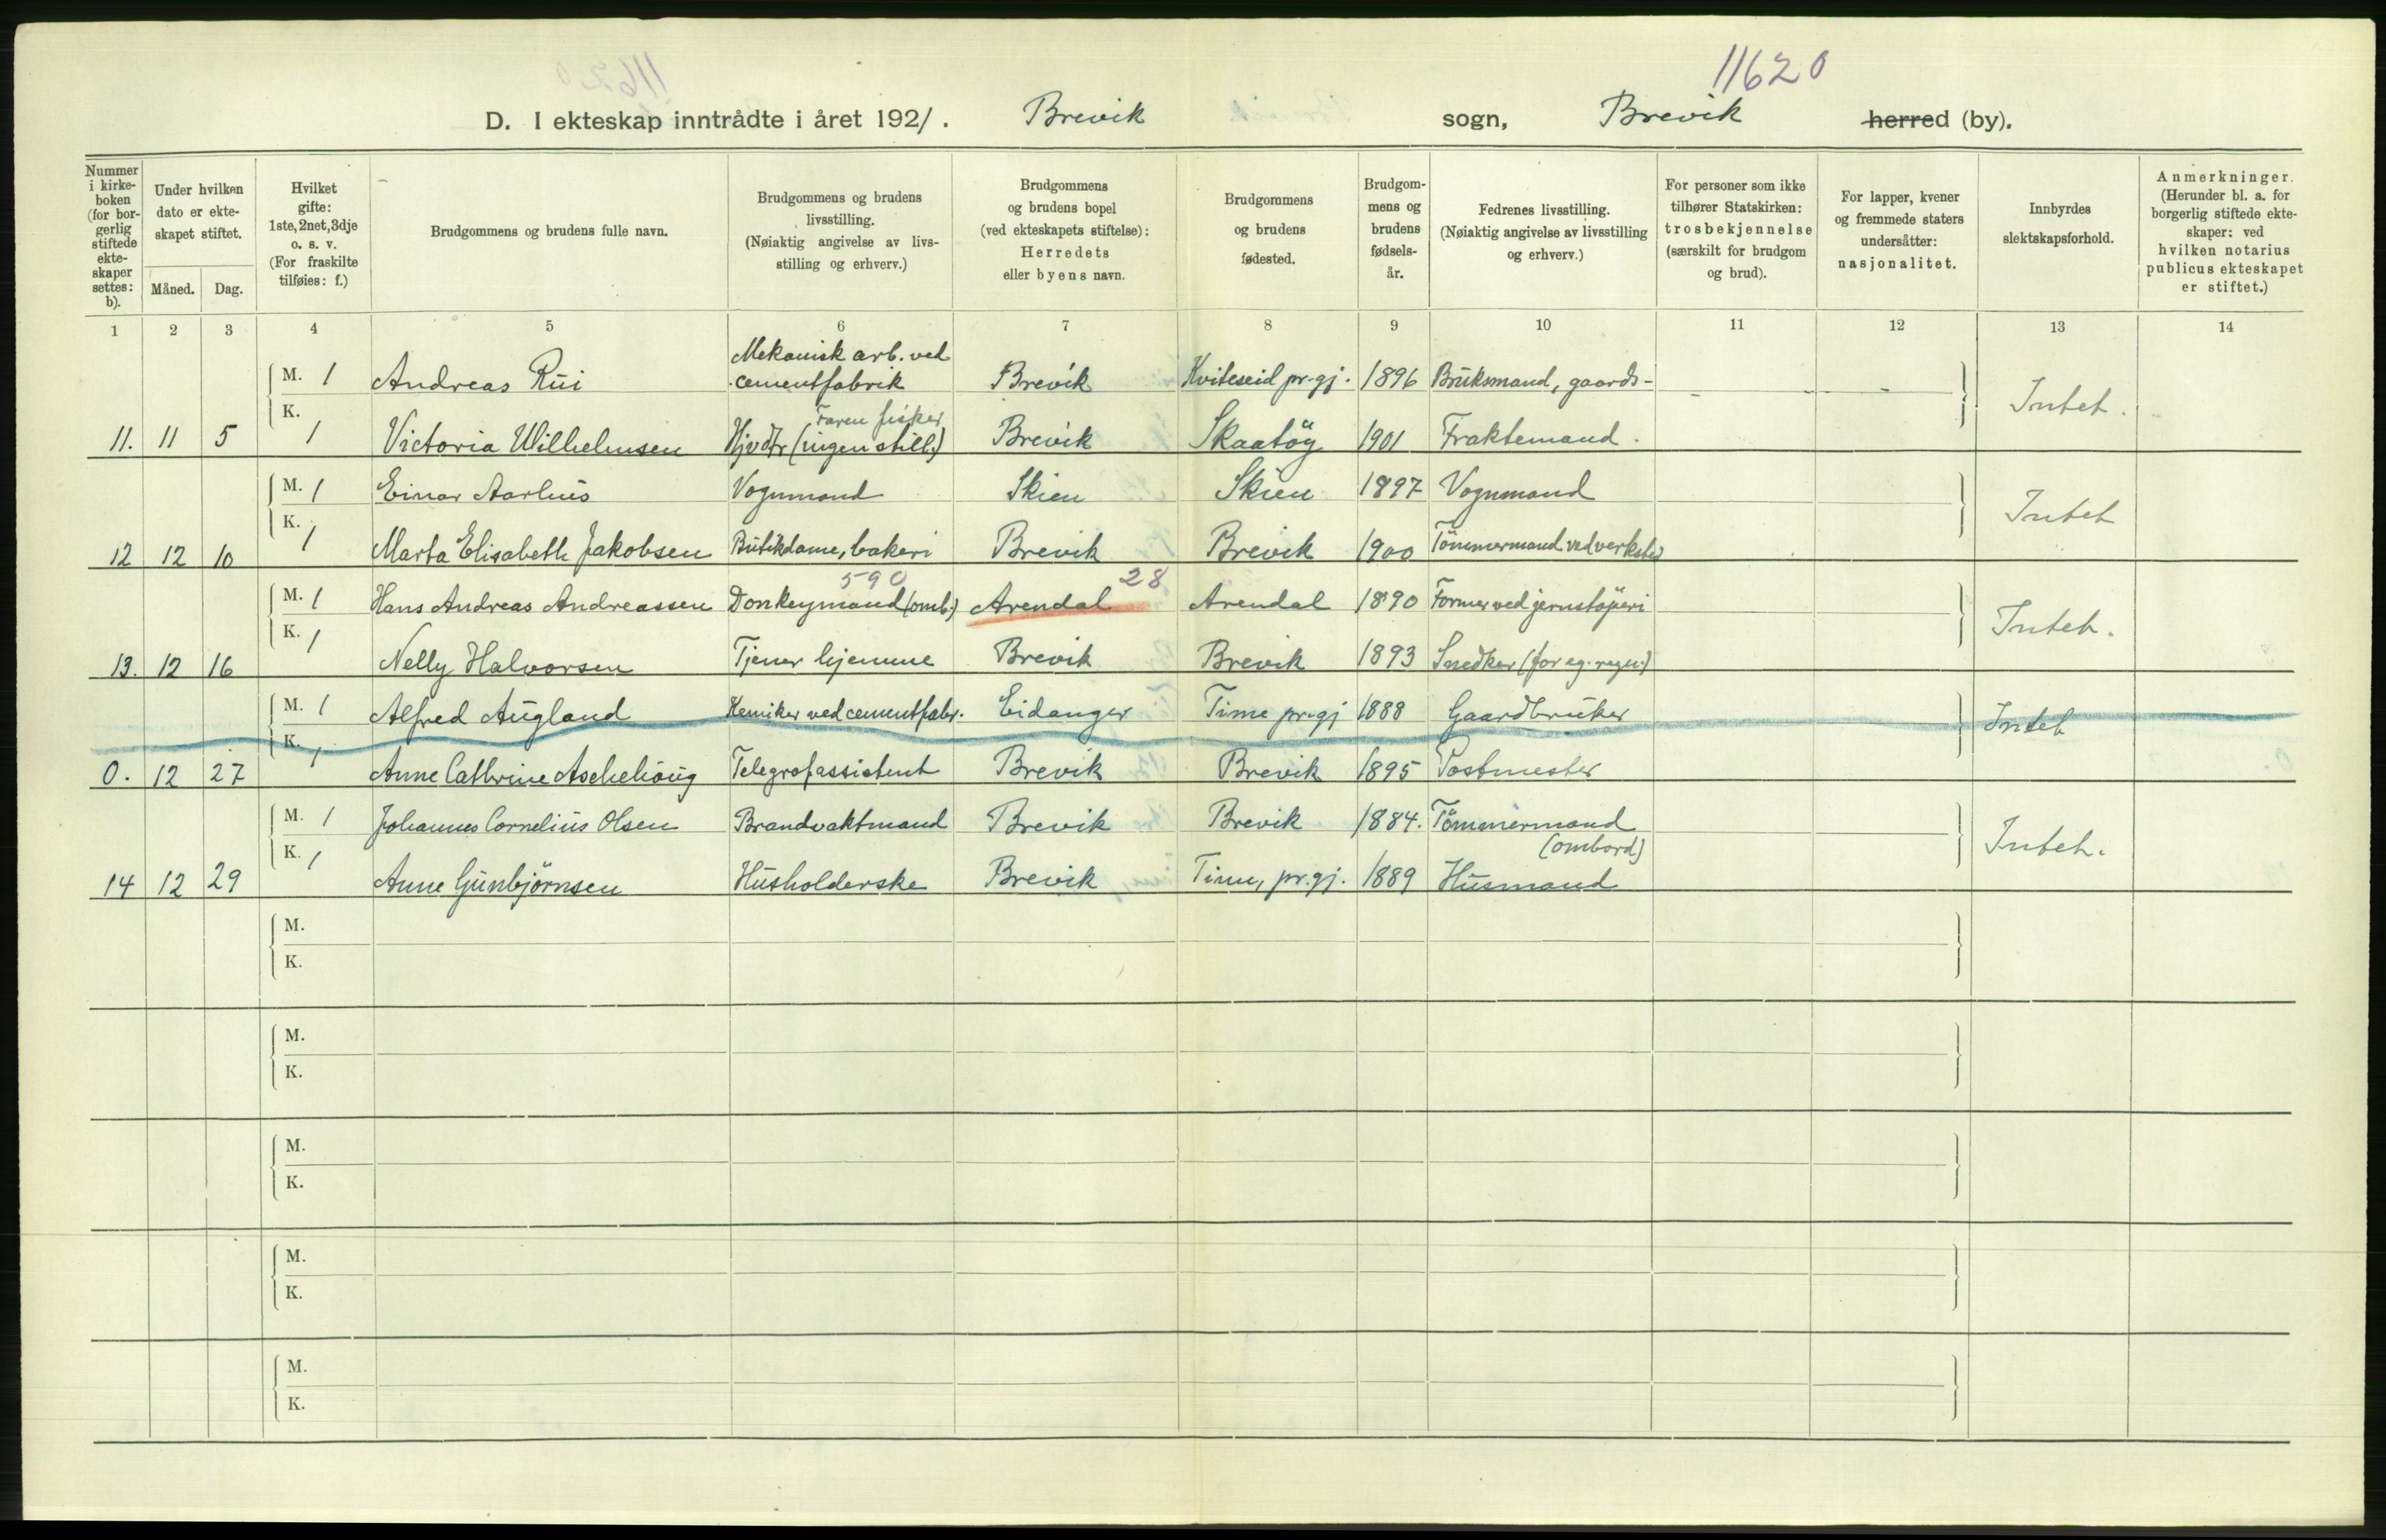 11620
D. I ekteskap inntrådte i året 1921. Brevik sogn, Brevik herred (by).
Nummer i kirke- boken (for bor- gerlig stiftede ekte- skaper settes: b).
Under hvilken dato er ekte- skapet stiftet.
Måned. Dag.
Hvilket gifte: 1ste, 2net, 3dje o. s. v. (For fraskilte tilføies: f.)
Brudgommens og brudens fulle navn.
Brudgommens og brudens livsstilling. (Nøiaktig angivelse av livs- stilling og erhverv.)
Brudgommens og brudens bopel (ved ekteskapets stiftelse): Herredets eller byens navn.
Brudgommens og brudens fødested.
Brudgom- mens og brudens fødsels- år.
Fedrenes livsstilling. (Nøiaktig angivelse av livsstilling og erhverv.)
For personer som ikke tilhører Statskirken: trosbekjennelse (særskilt for brudgom og brud).
For lapper, kvener og fremmede staters undersåtter: nasjonalitet.
Innbyrdes slektskapsforhold.
Anmerkninger. (Herunder bl. a. for borgerlig stiftede ekte- skaper: ved hvilken notarius publicus ekteskapet er stiftet.)
1 2 3 4 5 6 7 8 9 10 11 12 13 14
Mekanisk arb. ved
M. 1 Andreas Rui cementfabrik Brevik Kviteseid pr.gj. 1896 Bruksmand, gaards-
K. Faren fisker Intet.
11. 11 5 1 Victoria Wilhelmsen Hjvdtr (ingen still.) Brevik Skaatöy 1901 Fraktemand.
M. 1 Einar Aarhus Vognmand Skien Skien 1897 Vognmand
K. Intet
12 12 10 1 Marta Elisabeth Jakobsen Butikdame, bakeri Brevik Brevik 1900 Tömmermand ved verksted
590 28
M. 1 Hans Andreas Andreassen Donkeymand (omb.) Arendal Arendal 1890 Former ved jernstöperi
K. 1 Intet.
13. 12 16 Nelly Halvorsen Tjener hjemme Brevik Brevik 1893 Snedker (for eg. regn.)
M. 1 Alfred Augland Kemiker ved cementfabr. Eidanger Time pr.gj 1888 Gaardbruker
K. 1 Intet
0. 12 27 Anne Cathrine Aschehoug Telegrafassistent Brevik Brevik 1895 Postmester
M. 1 Johannes Cornelius Olsen Brandvaktmand Brevik Brevik 1884. Tömmermand
K. 1 (ombord) Intet.
14 12 29 Anne Gunbjörnsen Husholderske Brevik Tinn, pr.gj. 1889 Husmand
M.
K.
M.
K.
M.
K.
M.
K.
M.
K.